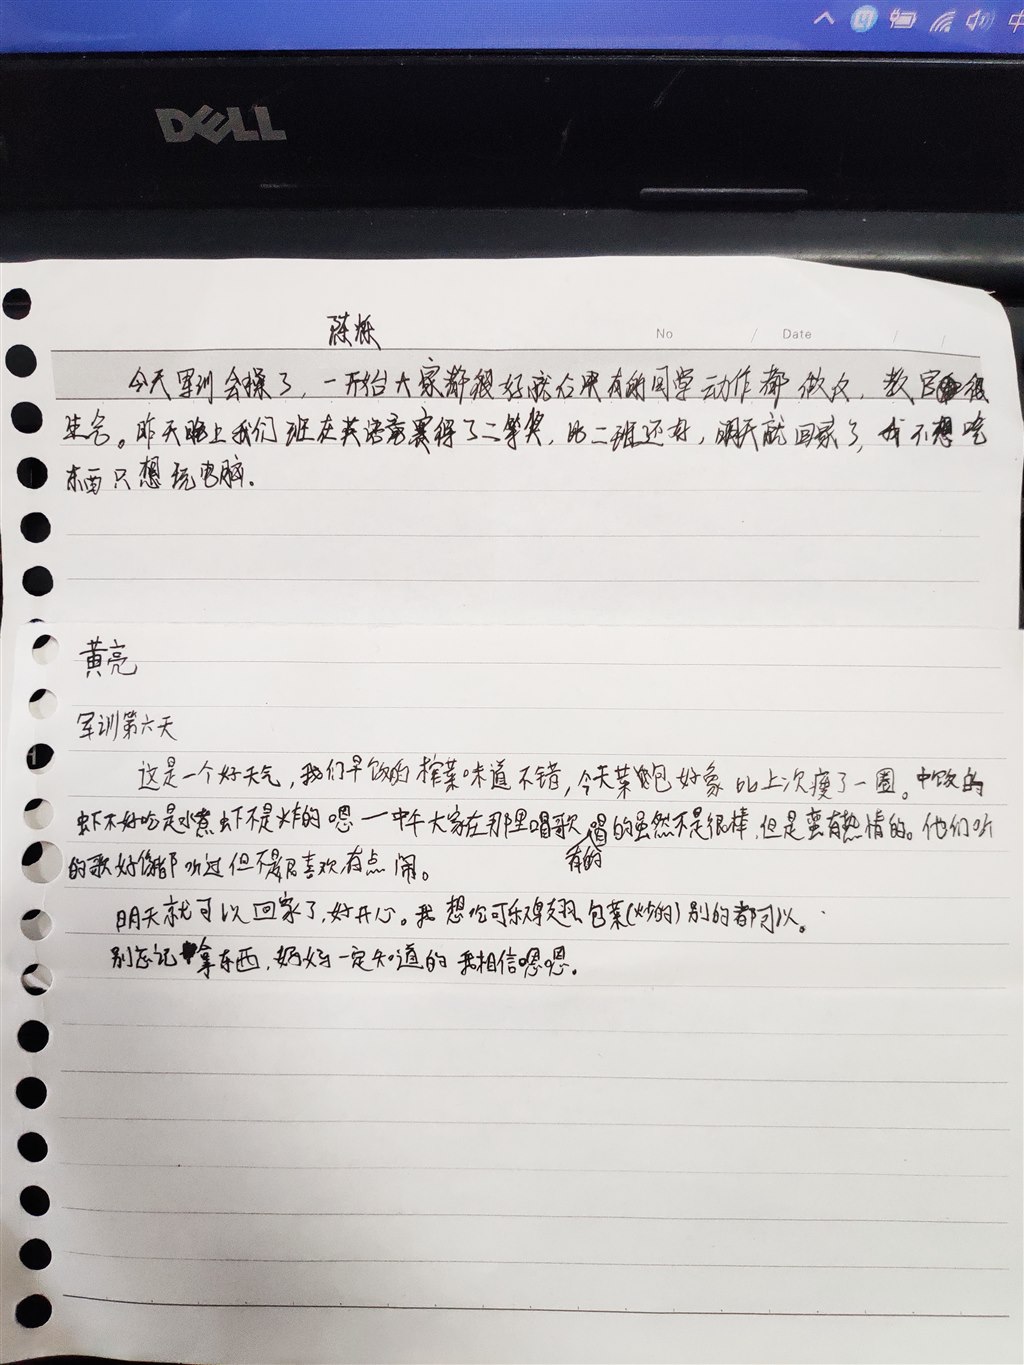 中
DELL
陈烁
No / Date / /
今天军训会操了，一开始大家都很好就后果有的同学动作都做反，教官很
生气。昨天晚上我们班在英语竞赛得了二等奖，比二班还好，明天就回家了，我不想吃
东西只想玩电脑.
黄亮
军训第六天
这是一个好天气，我们早饭的榨菜味道不错，今天菜包好象比上次瘦了一圈。中饭的
虾不好吃是水煮虾不是炸的 嗯 一中午大家在那里唱歌 有的唱的虽然不是很棒，但是蛮有热情的。他们听
的歌好像都听过但不是很喜欢，有点闹。
明天就可以回家了，好开心。我想吃可乐鸡翅，包菜(炒的)别的都可以。
别忘记拿东西，妈妈一定知道的 我相信嗯嗯。